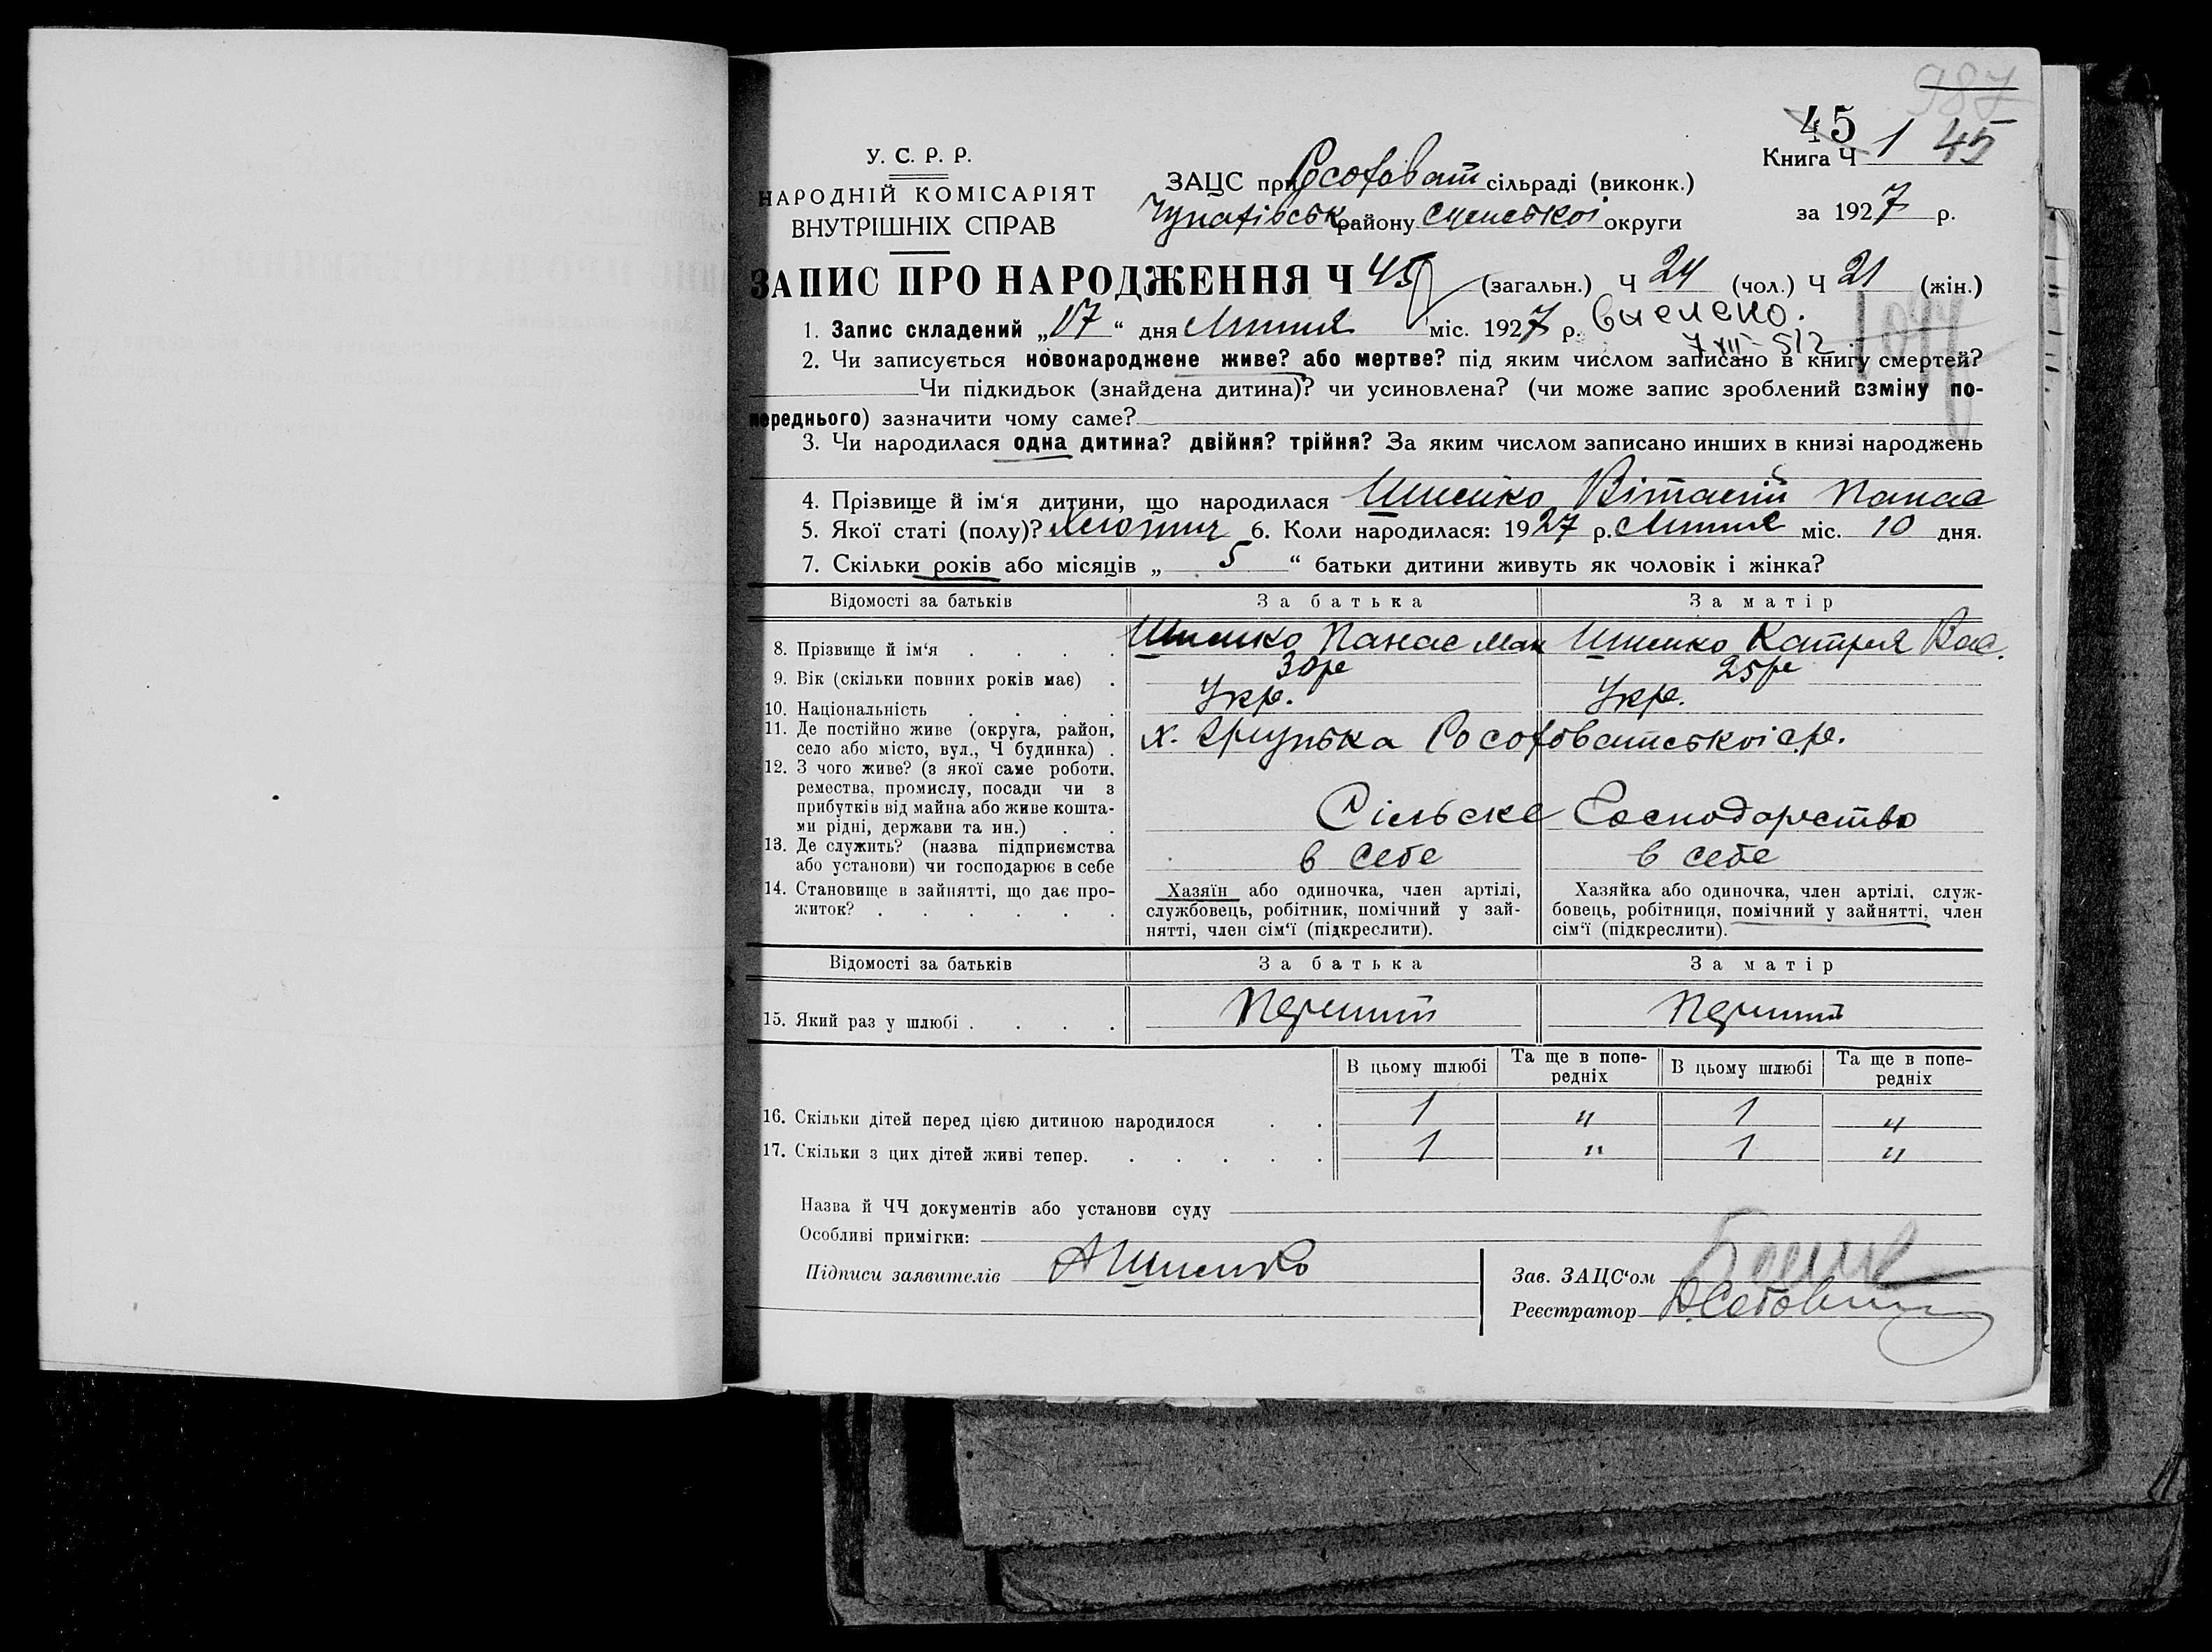 987
45
Книга Ч 1 45
У. С. Р. Р.
НАРОДНІЙ КОМІСАРІЯТ
ВНУТРІШНІХ СПРАВ
ЗАЦС при Росоховат сільраді (виконк.)
Чупахівськ району Сумської округи
за 1927 р.
ЗАПИС ПРО НАРОДЖЕННЯ Ч 45 (загальн.) Ч 24 (чол.) Ч 21 (жін.)
1. Запис складений „17“ дня Липня міс. 1927 р.
2. Чи записується новонароджене живе? або мертве? під яким числом записано в книгу смертей?
Чи підкидьок (знайдена дитина)? чи усиновлена? (чи може запис зроблений взміну по-
переднього) зазначити чому саме?
3. Чи народилася одна дитина? двійня? трійня? За яким числом записано инших в книзі народжень
4. Прізвище й ім‘я дитини, що народилася Віталій Панас
5. Якої статі (полу)? Хлопчик 6. Коли народилася: 1927 р. Липня міс. 10 дня.
7. Скільки років або місяців „ 5 “ батьки дитини живуть як чоловік і жінка?
Відомості за батьків За батька За матір
8. Прізвище й ім‘я Панас Мак Катря Вас.
9. Вік (скільки повних років має) 30 р 25 р
10. Національність Укр. Укр.
11. Де постійно живе (округа, район,
село або місто, вул., Ч будинка) х. Грицька Росоховатської с.р.
12. З чого живе? (з якої саме роботи,
ремества, промислу, посади чи з
прибутків від майна або живе кошта-
ми рідні, держави та ин.) Сільське Господарство
13. Де служить? (назва підприємства
або установи) чи господарює в себе в себе в себе
14. Становище в зайнятті, що дає про-
житок?
Хазяїн або одиночка, член артілі,
службовець, робітник, помічний у зай-
нятті, член сім‘ї (підкреслити).
Хазяйка або одиночка, член артілі, служ-
бовець, робітниця, помічний у зайнятті, член
сім‘ї (підкреслити).
Відомості за батьків За батька За матір
15. Який раз у шлюбі Перший Перший
В цьому шлюбі Та ще в попе-
редніх В цьому шлюбі Та ще в попе-
редніх
16. Скільки дітей перед цією дитиною народилося 1 " 1 "
17. Скільки з цих дітей живі тепер. 1 " 1 "
Назва й ЧЧ документів або установи суду
Особливі примітки:
Підписи заявителів
Зав. ЗАЦС‘ом
Реєстратор